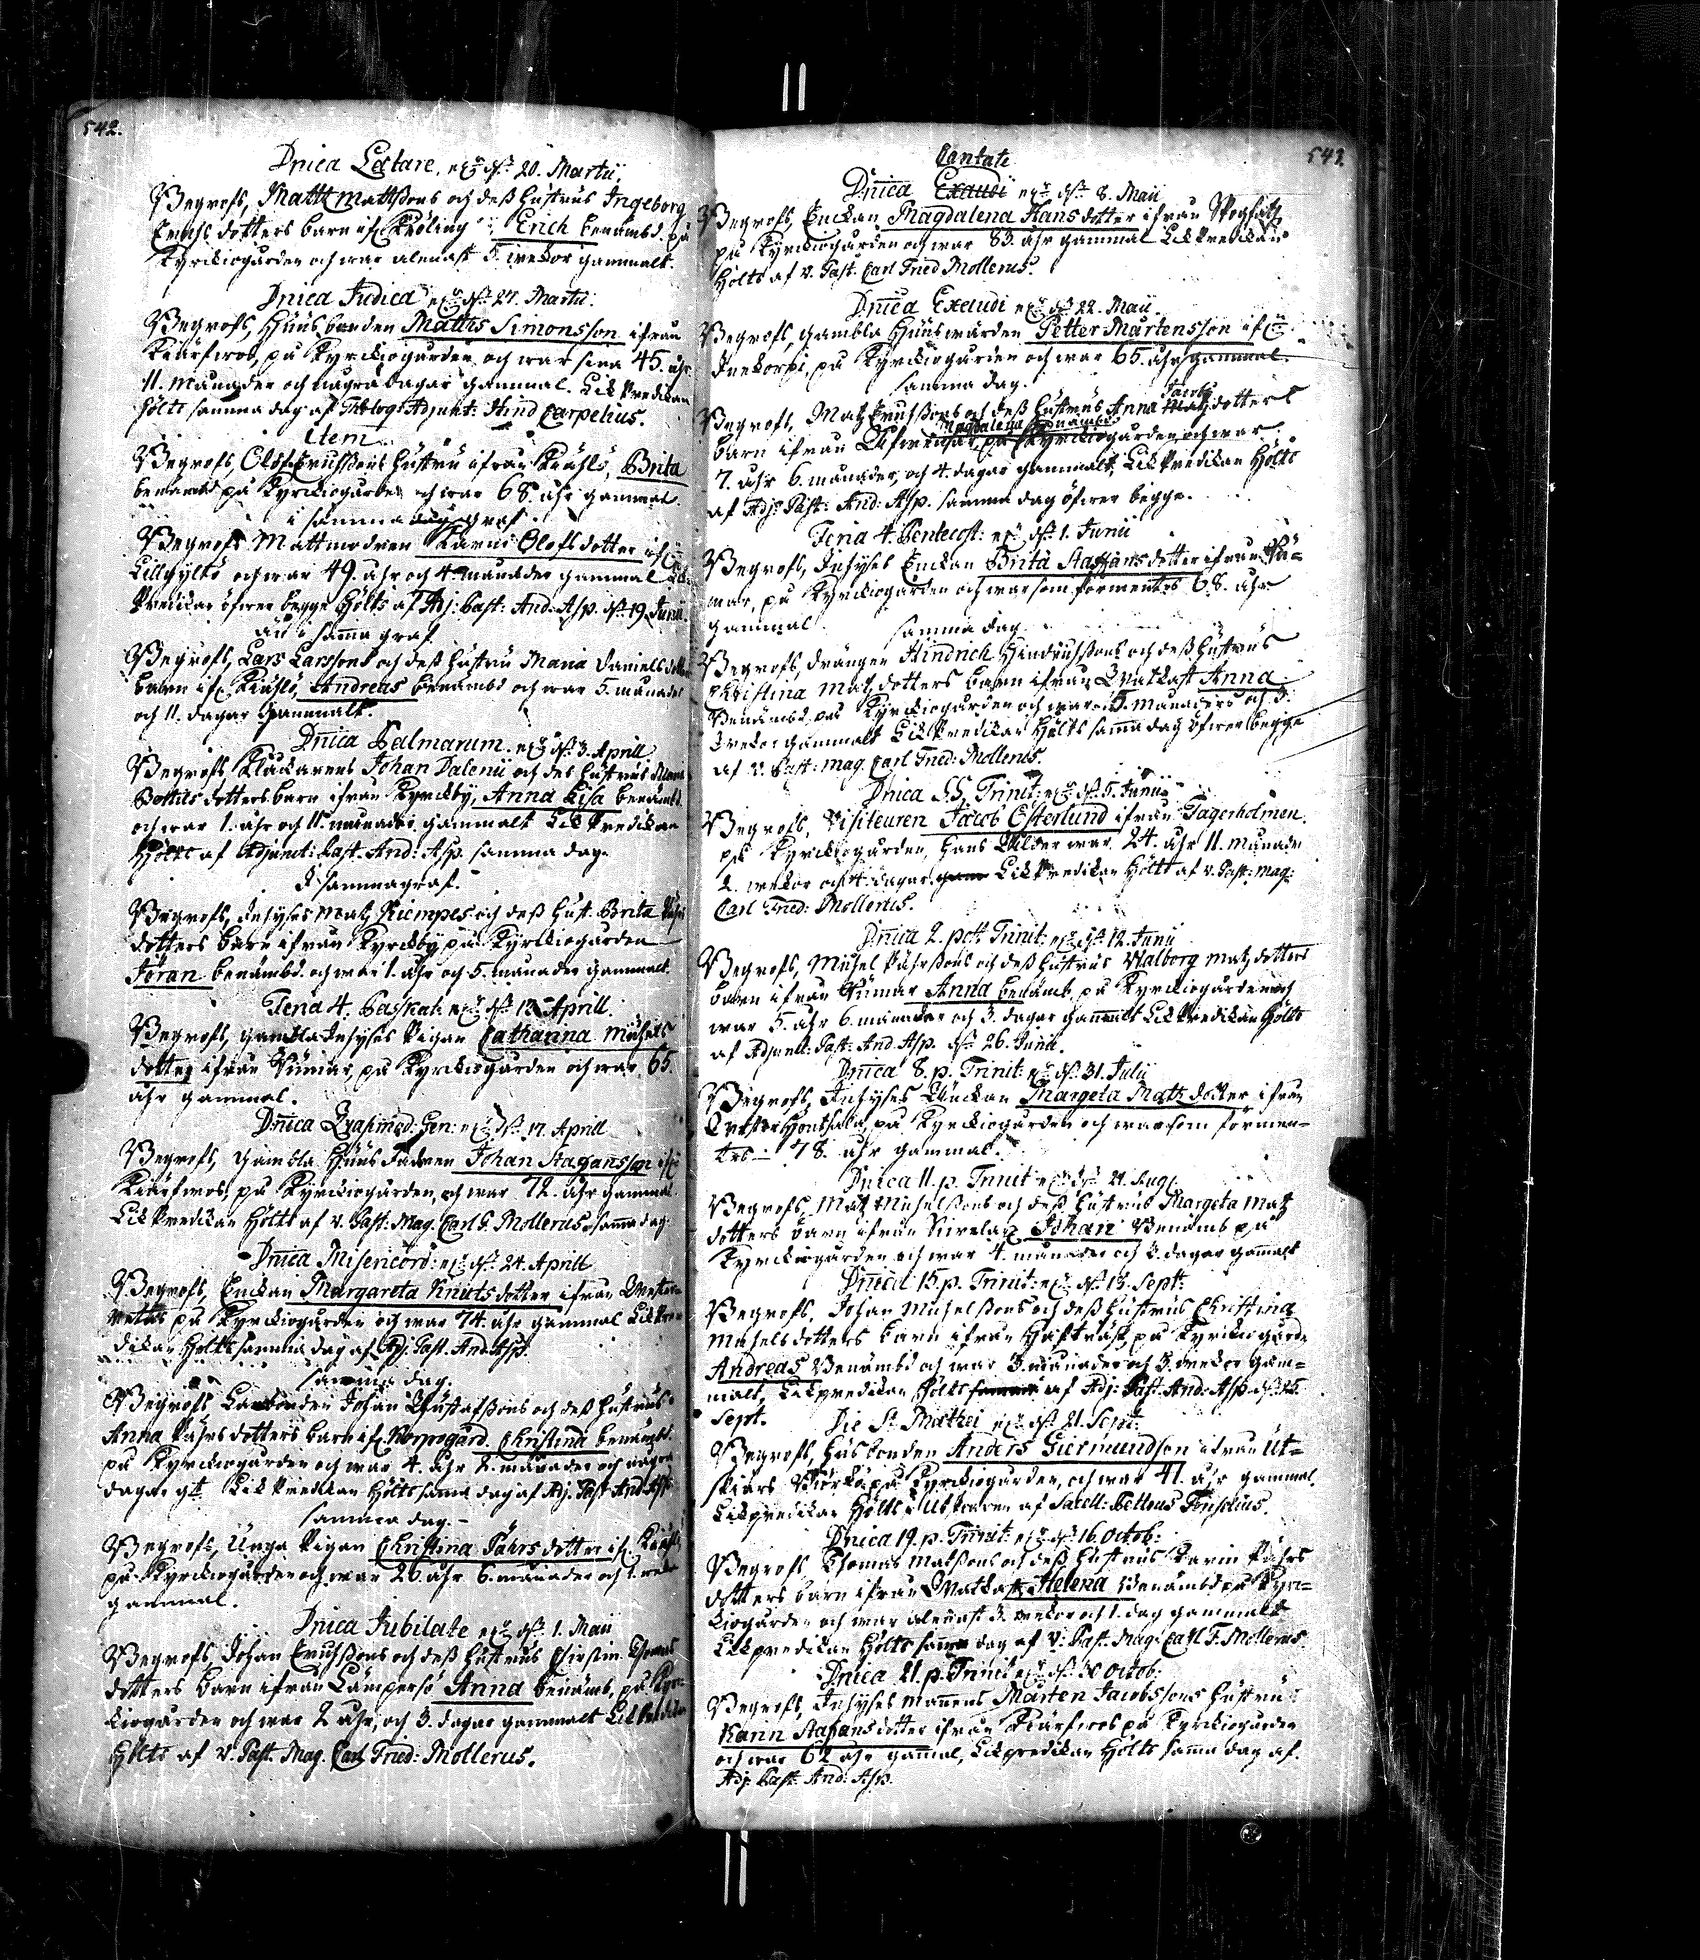 542.
Dnica Lætare, dn 20. Martii.
Begrofs, Matts Mattssons och dess hustrus Ingeborg
Erichs dotters barn Erich benämbd. på
Kyrckiogården och war alenast 5. wekor gammalt.
Dnica Judica dn 27. Martii.
Begrofs, Huusbonden Mattis Simonsson ifrån
på Kyrckiogården och war sina 45. åhr
11. månader och några dagar gammal. Likpredikan
hölts samma dag af Adjunt: Hind Carpelius.
Item
Begrofs, Olof Erichssons hustru ifrån Brita
benämbd på Kyrckiogården och war 68. åhr gammal.
i samma graf.
Begrofs Mattmodren Karin Olofsdotter
och war 49. åhr och 4. månader gammal Lik
predikan öfwer begge hölts af Adj: Past: And: Asp. d. 19. Junii.
än i samma graf
Begrofs, Lars Larssons och dess hustru Maria Daniels dotters
barn Andreas benämbd och war 5. månader
och 11. dagar gammalt.
Dnica Palmarum. dn 3. Aprill
Begrofs Klåckarens Johan Dalenii och des hustrus Maria
Bottils dotters barn ifrån Kyrckby, Anna Lisa benämbd
och war 1. åhr och 11. månader gammalt Likpredikan
hölts af Adjunct: Past. And: Asp. samma dag.
I samma graf.
Begrofs, Inhyses Matz Kiempes och dess hust. Brita
dotters barn ifrån Kyrckby på Kyrckiogården
Jöran benämbd. och war 1. åhr och 5. månader gammalt.
Feria 4. Paskat: dn 13. Aprill.
Begrofs, gambla Inhyses Pigan Catharina Michels
dotter ifrån på Kyrckiogården och war 65.
åhr gammal.
Dnica Quasimod: Gen: dn 17. Aprill
Begrofs, gambla Huus Fadren Johan Stafansson
på Kyrckiogården, och war 72. åhr gammal.
Likpredikan hölts af v. Past: Mag. Carl F. Mollerus samma dag.
Dnica Misericord: dn 24. Aprill
Begrofs, Enckan Margareta Knutsdotter ifrån
på Kyrckiogården och war 74. åhr gammal Likpre
dikan hölts samma dag af Adj. Past. And. Asp.
samma dag.
Begrofs Johan Gustafssons och dess hustrus
Anna Påhrs dotters barn Christina benämbd
på Kyrckiogården och war 4. åhr 2. månader och några
dagar Likpredikan hölts samma dag af Adj. Past. And. Asp
samma dag.
Begrofs, Unga Pigan Christina Påhrsdotter
på Kyrckiogården och war 26 åhr 6. månader och 1. weka
gammal.
Dnica Jubilate dn 1. Maii
Begrofs, Johan Erichssons och dess hustrus Chirstin
dotters barn ifrån Lampersö Anna benämb, på Kyr-
ckiogården och war 2 åhr, och 3. dagar gammalt Likpredikan
hölts af v. Past. Mag. Carl Fried: Mollerus.
543.
Cantate
Dnica Exaudi dn 8. Maii
Begrofs, Enckan Magdalena Hansdotter ifrån
på Kyrckiogården och war 83. åhr gammal Likpredikan
hölts af v. Past. Carl Fried Mollerus.
Dnica Exaudi dn 22. Maii.
Begrofs, gambla Huuswärden Petter Mårtensson
på Kyrckiogården och war 65. åhr gammal.
samma dag.
Begrofs, Matz Erichssons och dess hustrus Anna Jacobs dotters
barn ifrån Magdalena benämbd på Kyrckiogården och war
7. åhr 6. månader, och 4. dagar gammalt, Likpredikan hölts
af Adj: Past: And: Asp. samma dag öfwer begge.
Feria 4. Pentecost: dn 1. Junii
Begrofs, Inhyses Enckan Brita Staffans dotter ifrån
på Kyrckiogården och war som förmentes 68. åhr
gammal samma dag.
Begrofs, Drängen Hindrich Hindrichssons och dess hustrus
Christina Matz dotters barn ifrån Qvatlax Anna
Benämbd, på Kyrckiogården och war 5. månaders och 3.
wekor gammalt Likpredikan hölts samma dag öfwer begge
af v. Past: mag. Carl Fried: Mollerus.
Dnica SS. Trinit: dn 5. Junii
Begrofs, Visiteuren Jacob Österlund ifrån Tagerholmen.
på Kyrckiogården, hans ålder war 24. åhr 11. månader
2. wekor och 4. dagar. Likpredikan hölts af v. Past: mag:
Carl Fried: Mollerus.
Dnica 2. post Trinit: dn 12. Junii
Begrofs, Michel Påhrssons och dess hustrus Walborg Matz dotters
barn ifrån Anna benämb på Kyrckiogården och
war 5. åhr 6. månader och 3. dagar gammalt Likpredikan hölts
af Adjunct: Past: And. Asp. d. 26. Junii.
Dnica 8. p. Trinit: dn 31. Julii
Begrofs, Inhyses Enckan Margeta Matz dotter ifrån
på Kyrckiogården och war som förmen-
tes 78 åhr gammal.
Dnica 11. p. Trinit dn 21. Aug.
Begrofs, Matz Michelssons och dess hustrus Margeta Matz
dotters barn ifrån Kirvelax Johan benämb på
Kyrckiogården och war 4. månader och 3. dagar gamalt
Dnica 15. p. Trinit: dn 18. Sept.
Begrofs, Johan Michelssons och dess hustrus Christina
Michels dotters barn ifrån på Kyrckiogården
Andreas Benämbd och war 3. månader och 3. wekor gam-
malt, Likpredikan hölts af Adj: Past: And: Asp. d. 25.
Sept. Die St. Mathei dn 21. Sept:
Begrofs, husbonden Anders Giermundson ifrån Ut-
skiärs på Kyrckiogården, och war 41. åhr gammal.
Likpredikan hölts af Sacell: Petterus
Dnica 19. p. Trinit: dn 16. Octob:
Begrofs, Thomas Matssons och dess hustrus Karin Påhrs
dotters barn ifrån Qvatlax Helena benämbd på Kyrc-
kiogården och war alenast 3. wekor och 1. dag gammalt
Likpredikan hölts samma dag af v: Past. Mag: Carl F. Mollerus.
Dnica 21. p. Trinit dn 30 Octob:
Begrofs, Inhyses mannens Mårten Jacobssons hustru
Karin Stafans dotter ifrån på Kyrckiogården
och war 62 åhr gammal, Likpredikan hölts samma dag af
Adj: Past: And: Asp.